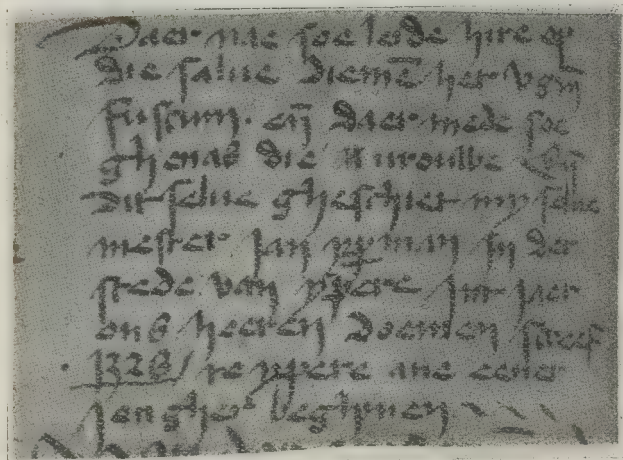 Daer nae soe leide hire op
die salue diemē het vngū
fuscum. en̄ daer mede soe
ghenas die vrouwe
dit selue gheschiet my selue
mester Jan yperman in der
stede van ypere int jaer
ons heeren doemen screef
te ypere ane eener
jongher beghinen